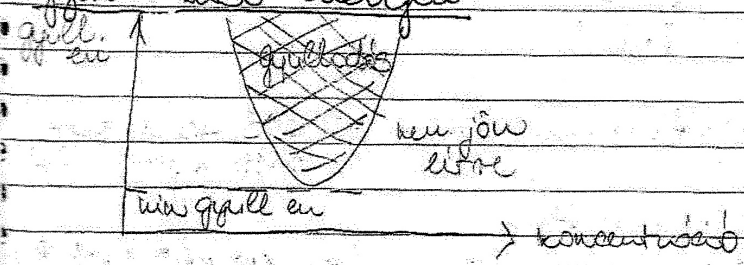 gyúll.
en
gyulladás
nem jön
létre
min gyúll en
koncentráció